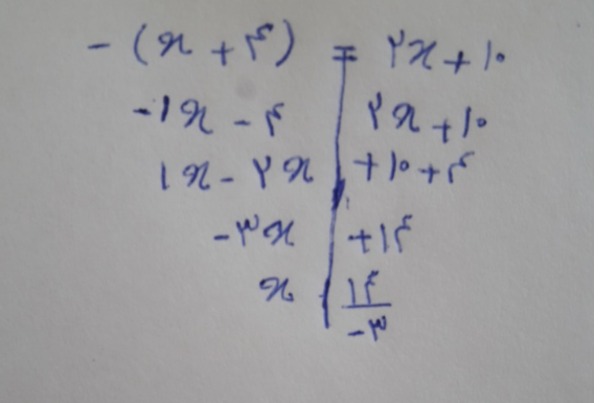 -(x + ۴) = ۲x + ۱۰
-۱x - ۴ | ۲x + ۱۰
۱x - ۲x | +۱۰ + ۴
-۳x | +۱۴
x | ۱۴/-۳